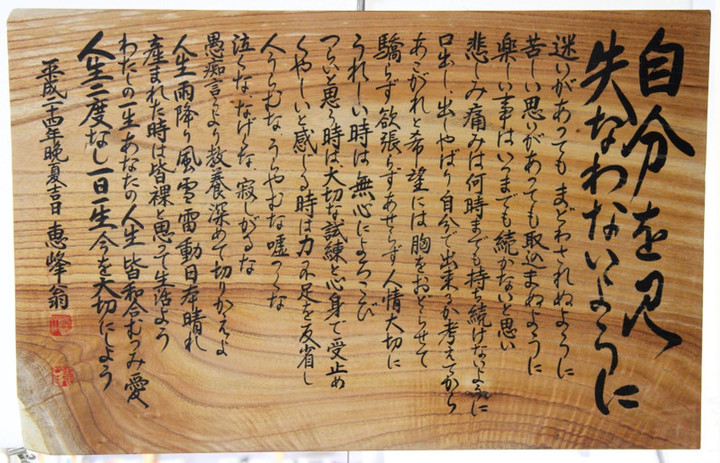 自分を見
失なわないように
迷いがあっても まどわされぬように
苦しい思いがあっても取込まぬように
楽しい事はいつまでも続かないと思い
悲しみ痛みは何時までも持ち続けないように
口出し、出しやばり自分で出来るか考えてから
あこがれと希望には胸をおどらせて
驕らず欲張らずあせらず人情大切に
うれしい時は無心によろこび
つらいと思う時は大切な試練と心身で受止め
くやしいと感じる時は力不足を反省し
人うらむな、うらやむな嘘つくな
泣くな、なげくな、寂しがるな
愚痴言うより教養深めて切りかえよ
人生雨降り風雪雷動日本晴れ
産まれた時は皆裸と思って生活よう
わたしの一生あなたの人生 皆和合むつみ愛
人生二度なし一日一生今を大切にしよう
平成二十四年晩夏吉日 恵峰翁